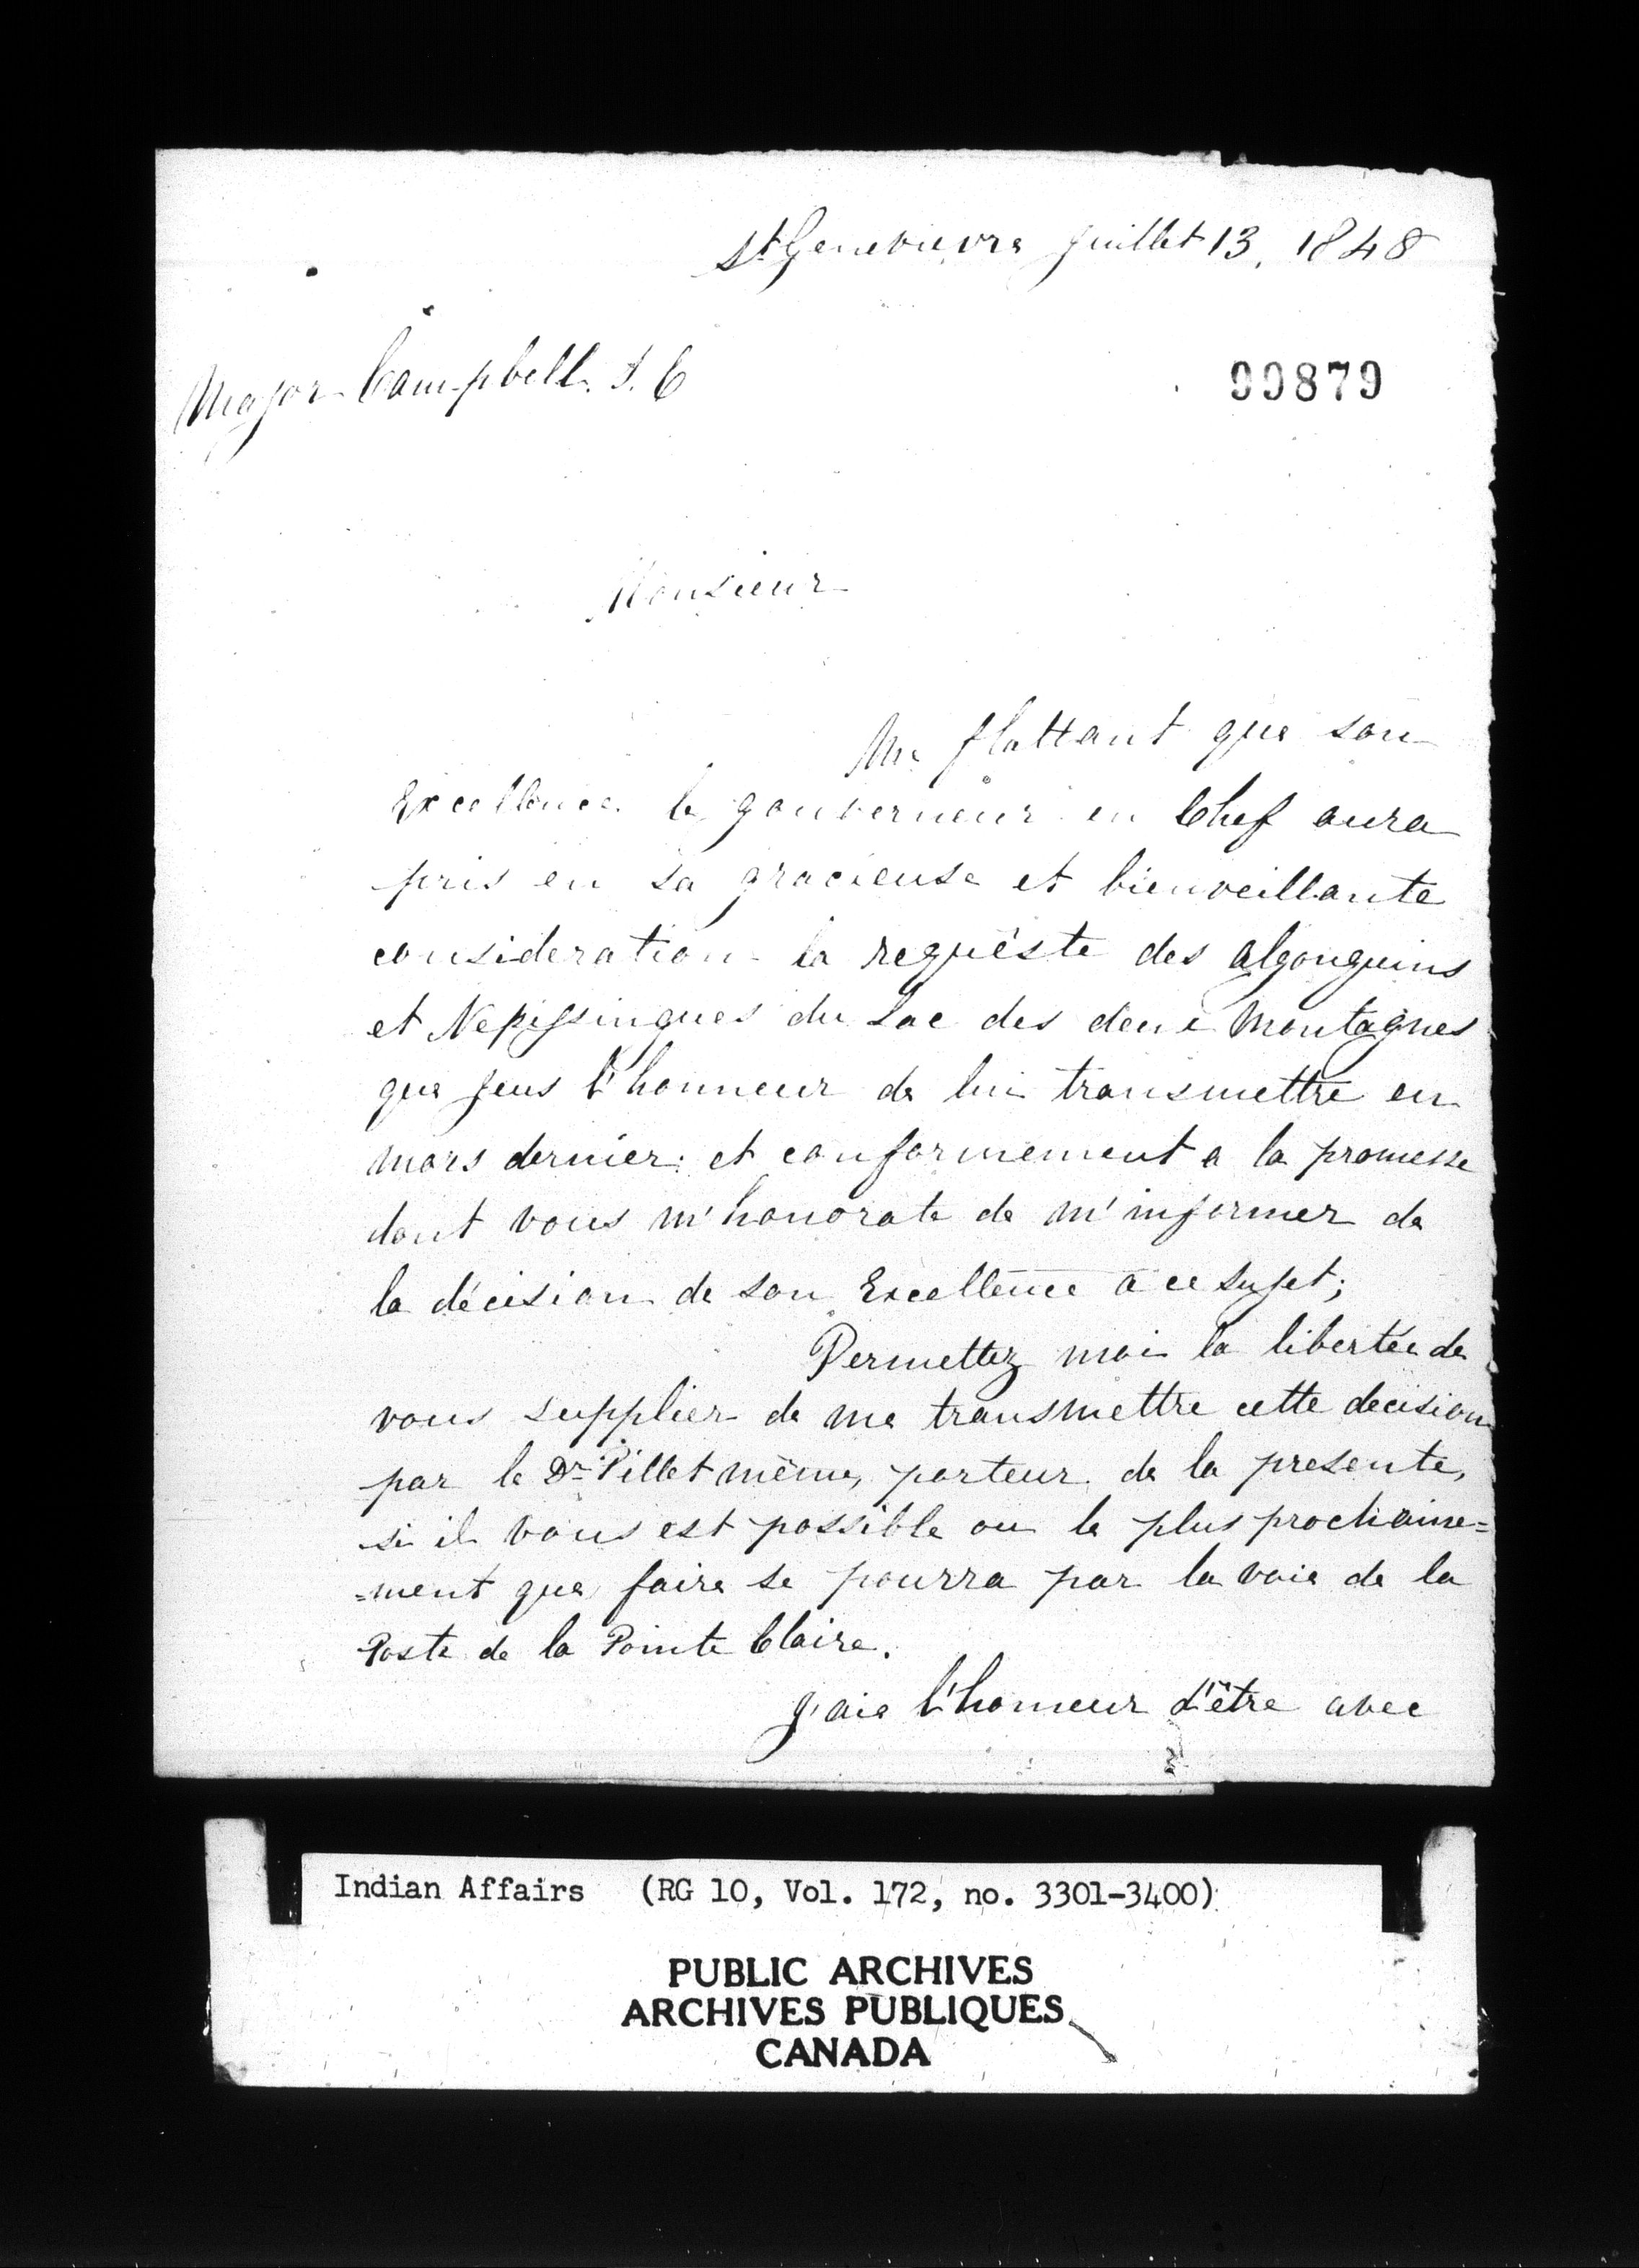 St Genevieve juillet 13, 1848
Major Campbell. S. C
99879
Monsieur
Me flattant que son
Excellence le gouverneur en Chef aura
pris en sa gracieuse et bienveillante
consideration la requêste des algonquins
et Nepissingues du Lac des deux Montagnes
que jeus l'honneur de lui transmettre en
mars dernier; et conformement a la promesse
dont vous m'honorate de m'informer de
la décision de son Excellence a ce sujet;
Permettez moi la libertée de
vous supplier de me transmettre cette decision
par le Dr Pillet même, porteur de la presente,
si il vous est possible ou le plus prochaine=
=ment que faire se pourra par la voie de la
Poste de la Pointe Claire.
J'aie l'honneur d'être avec
Indian Affairs (RG 10, Vol. 172, no. 3301-3400)
PUBLIC ARCHIVES
ARCHIVES PUBLIQUES
CANADA